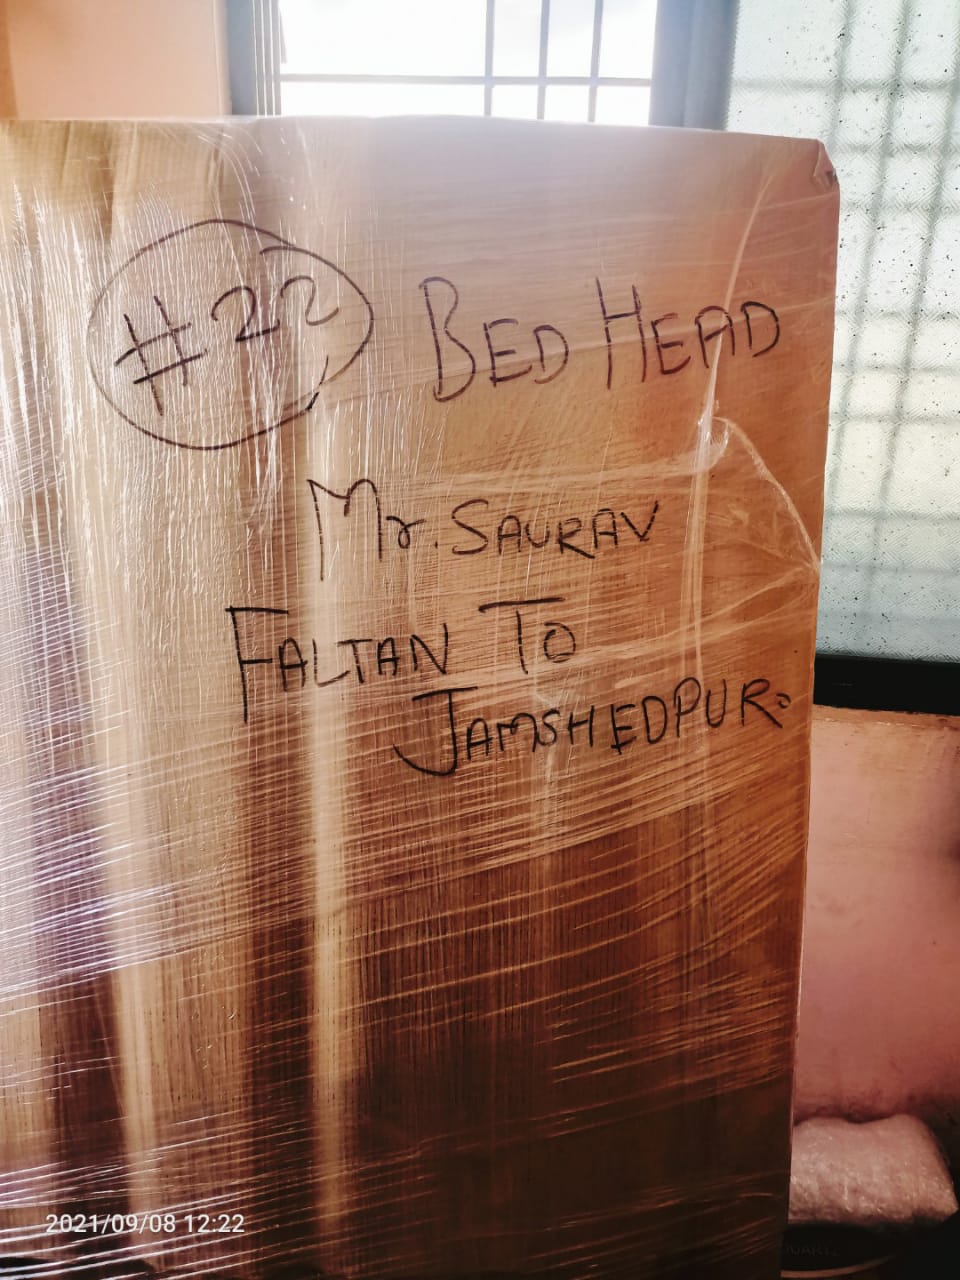 #22 BED HEAD
Mr. SAURAV
FALTAN TO
JAMSHEDPUR.
2021/09/08 12:22